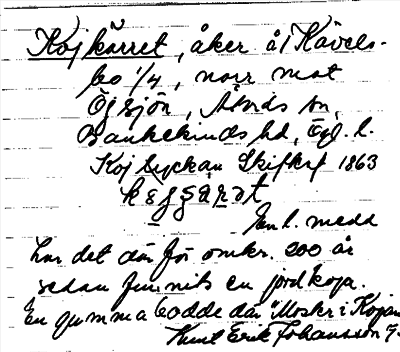 Kojkärret, åker å Kävels-
bo 1/4, norr mot
Ögsjön, Åtvids sn,
Bankekinds hd, Ögl. l.
Koj Lyckan Skifteskf 1863
Enl. medd
har det där för omkr. 200 år
sedan funnits en jordkoja.
En gumma bodde där "Moster i Kojan
Knut Erik Johansson